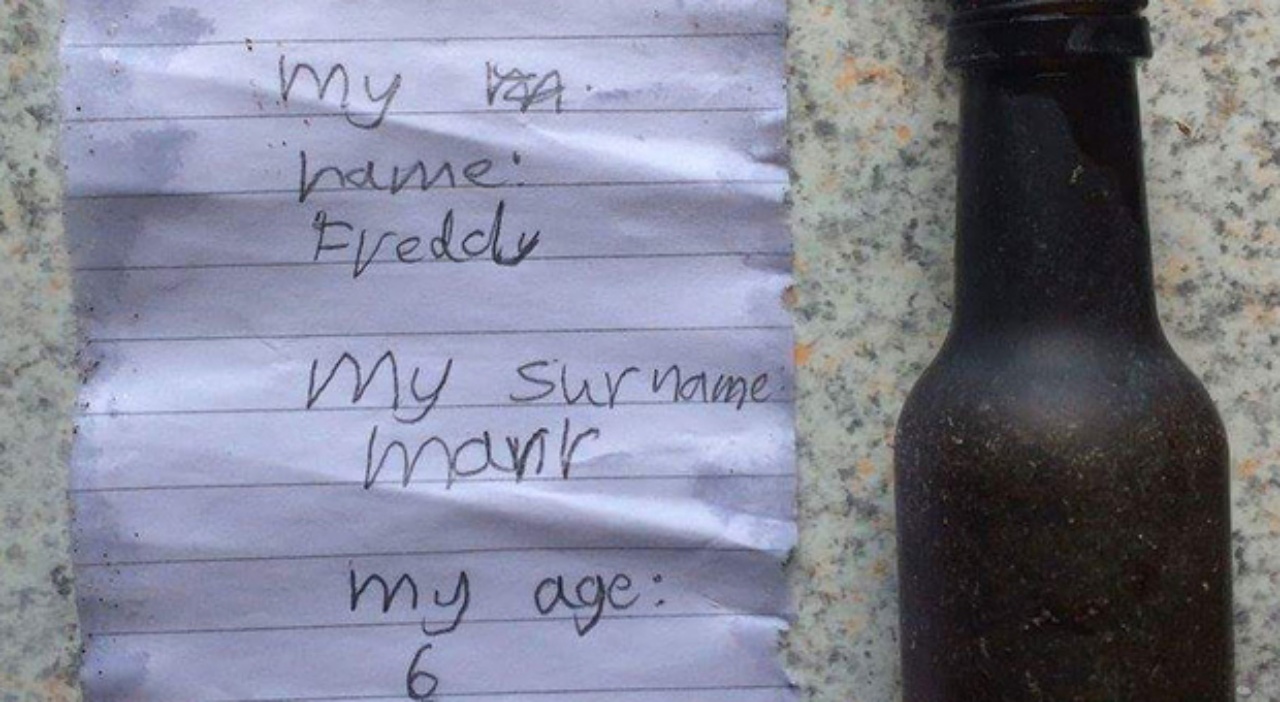 My
name:
Freddy
My surname
my age:
6